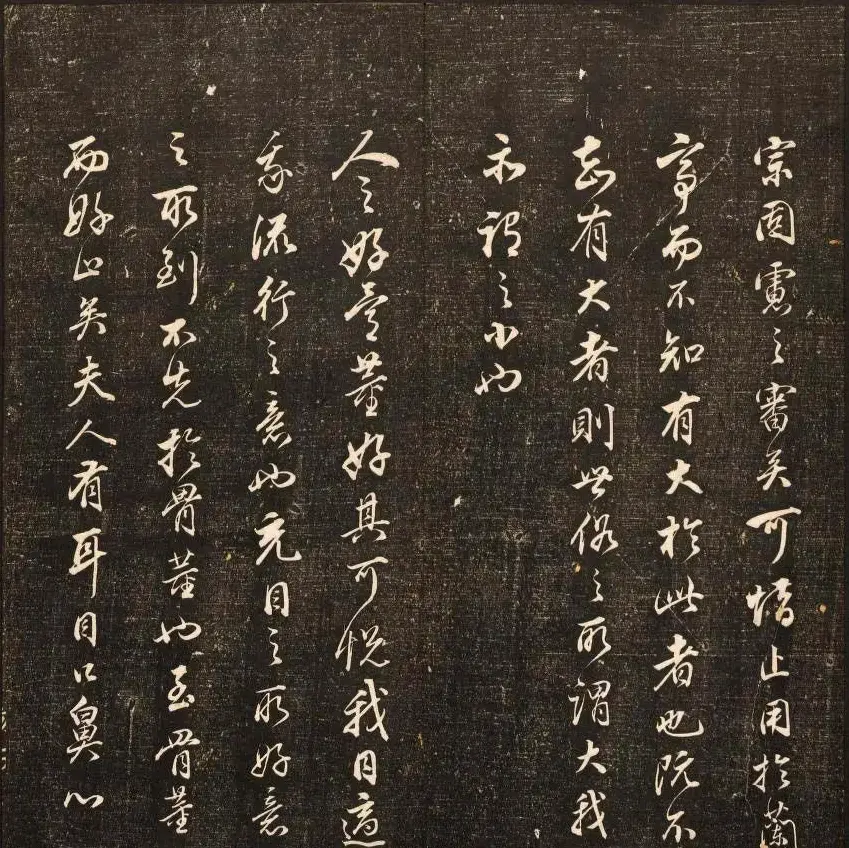 宗固慮之審矣可惜止用於蘭
亭而不知有大於此者也既不
知有大者則世俗之所謂大我
亦謂之小也
人之好骨董好其可悅我目適
我流行之意也充目之所好意
之所到不先於骨董也至骨董
而好止矣夫人有耳目口鼻心